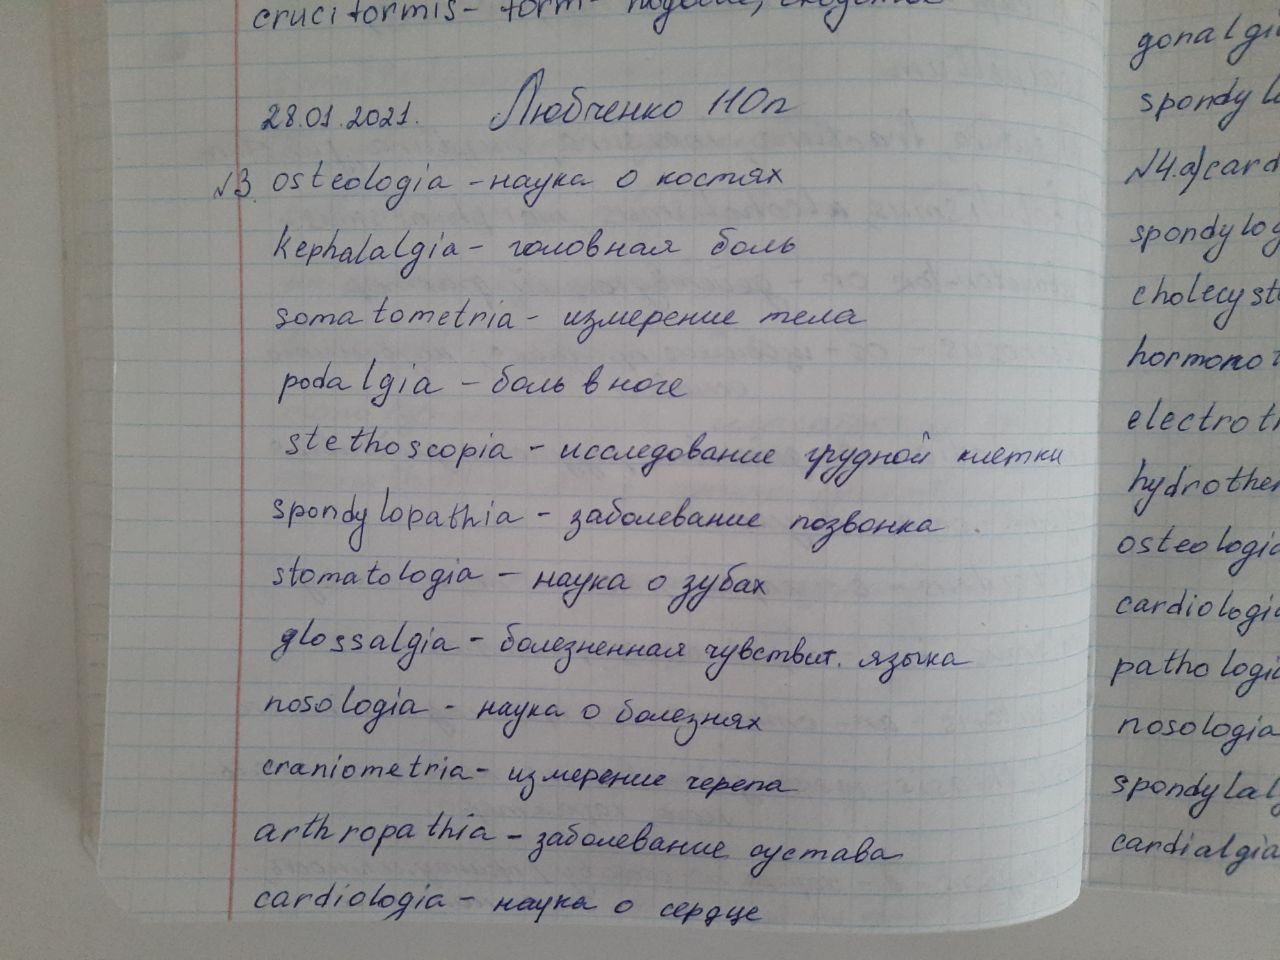 cruciformis - form-
28.01.2021. Любченко 110п
№3. osteologia - наука о костях
kephalalgia - головная боль
somatometria - измерение тела
podalgia - боль в ноге
stethoscopia - исследование грудной клетки
spondylopathia - заболевание позвонка
stomatologia - наука о зубах
glossalgia - болезненная чувствит. языка
nosologia - наука о болезнях
craniometria - измерение черепа
arthropathia - заболевание сустава
cardiologia - наука о сердце
gonalgi
spondyl
№4.а) card
spondylog
cholecyst
hormono
electrot
hydrother
osteologia
cardiologia
pathologi
nosologia
spondylal
cardialgia